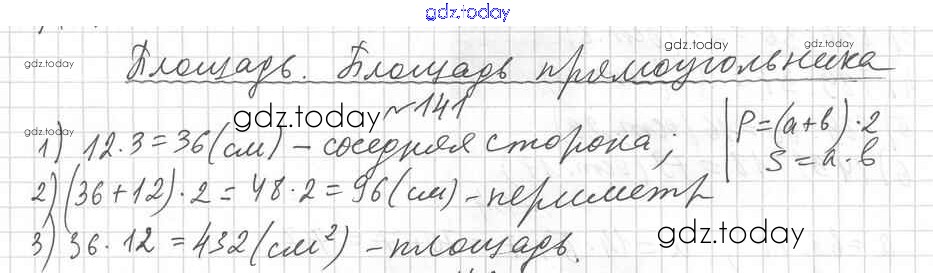 gdz.today
gdz.today
gdz.today gdz.today
Площадь. Площадь прямоугольника
№141
gdz.today
1) 12·3=36(см) – соседняя сторона; P=(a+b)·2
S=a·b
gdz.today gdz.today
2) (36+12)·2=48·2=96(см) – периметр
3) 36·12=432(см²) – площадь.
gdz.today
gdz.today